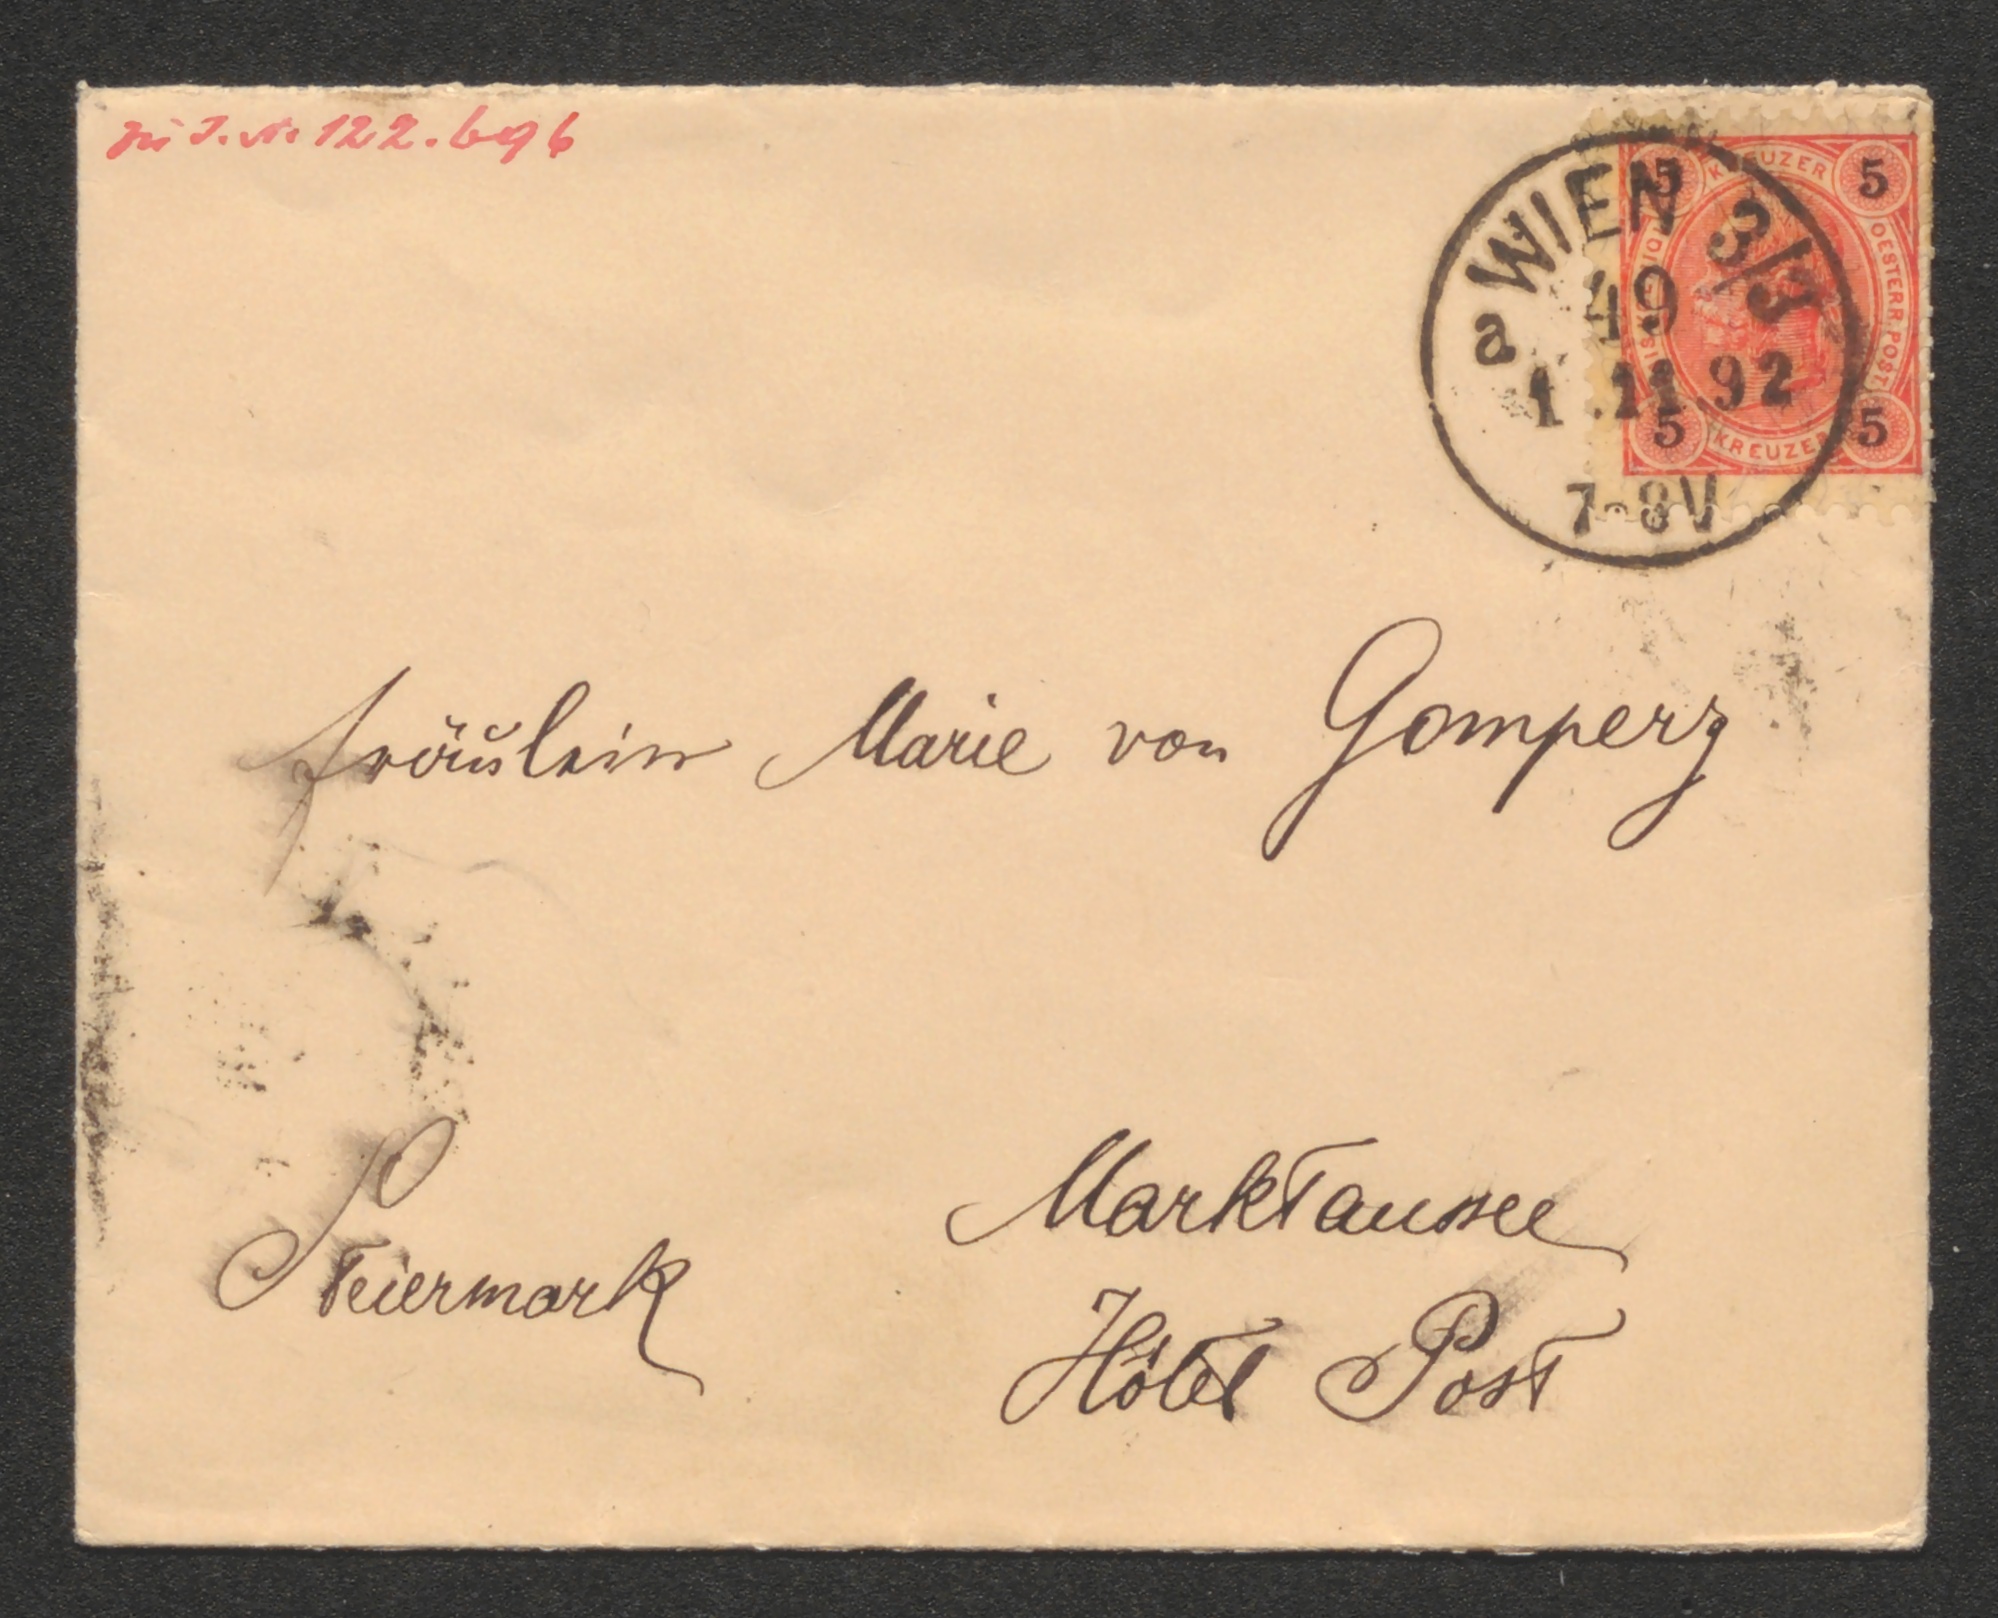 zu I. N. 122.696
KREUZER
5 5
OESTERR. POST.
a WIEN 3/3
49
1.11.92
5 5
KREUZER
7-8V
Fräulein Marie von Gomperz
Marktaussee
Steiermark
Hôtel Post